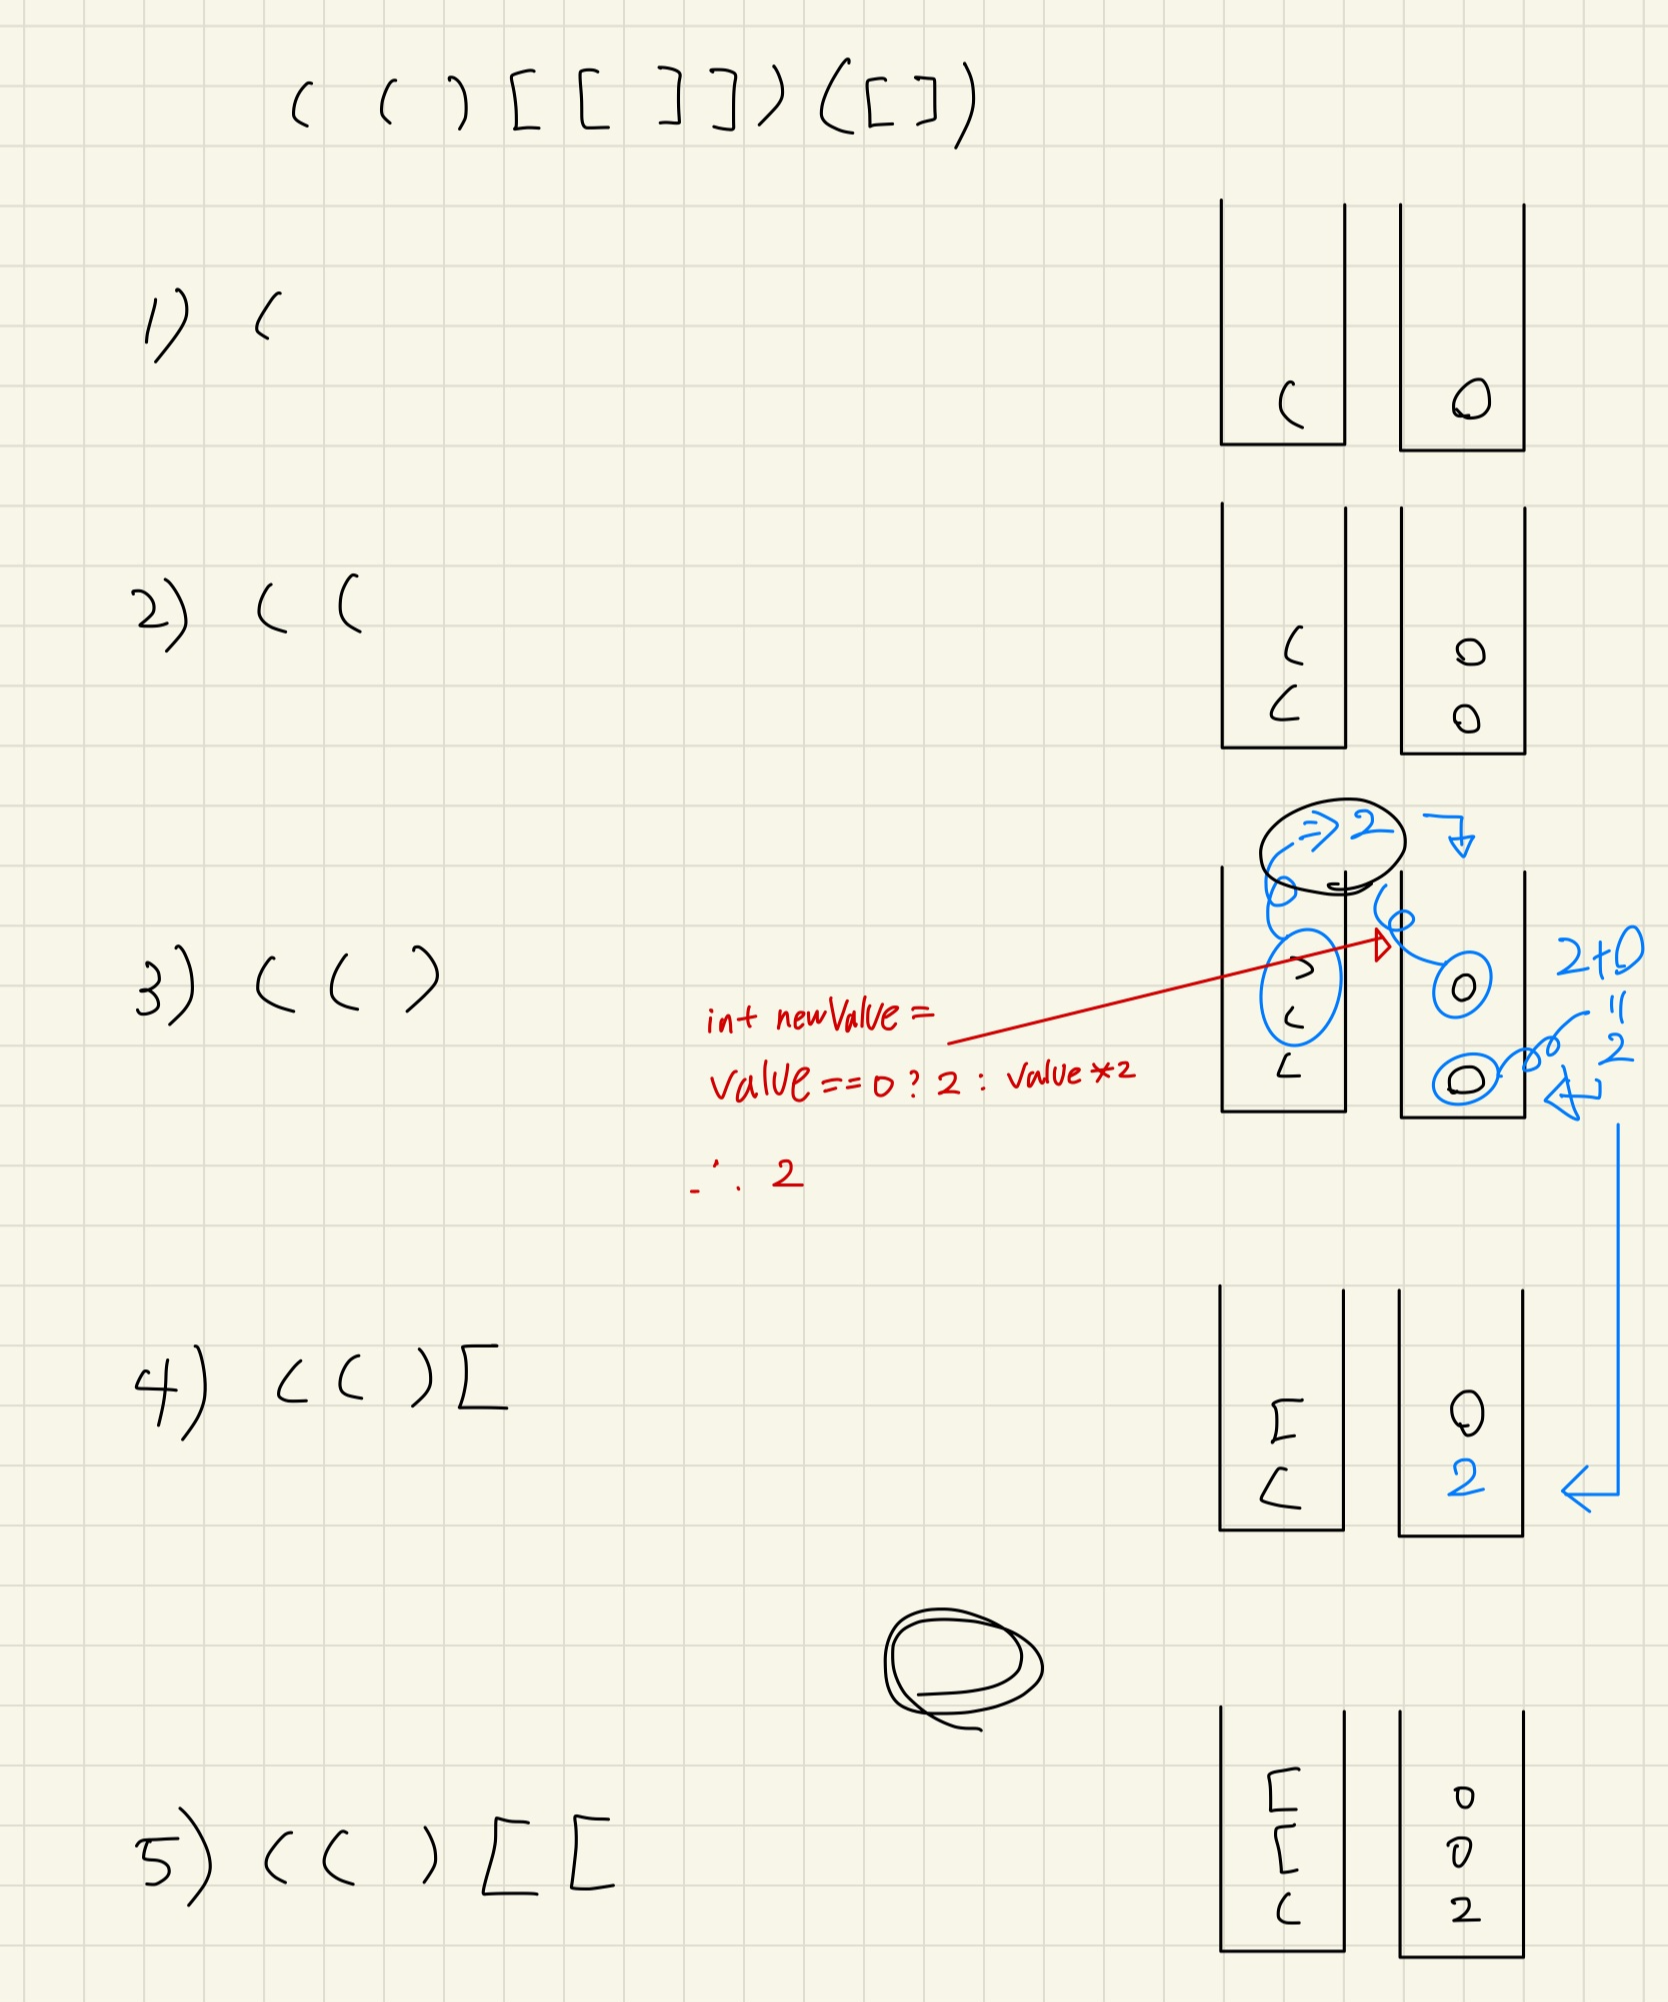 ( ( ) [ [ ] ] ) ( [ ] )
1) (
(
0
2) ( (
(
(
0
0
=> 2
3) ( ( )
)
(
(
0
0
2+0
=
2
int newValue =
value == 0 ? 2 : value *2
∴ 2
4) ( ( ) [
[
(
0
2
5) ( ( ) [ [
[
[
(
0
0
2